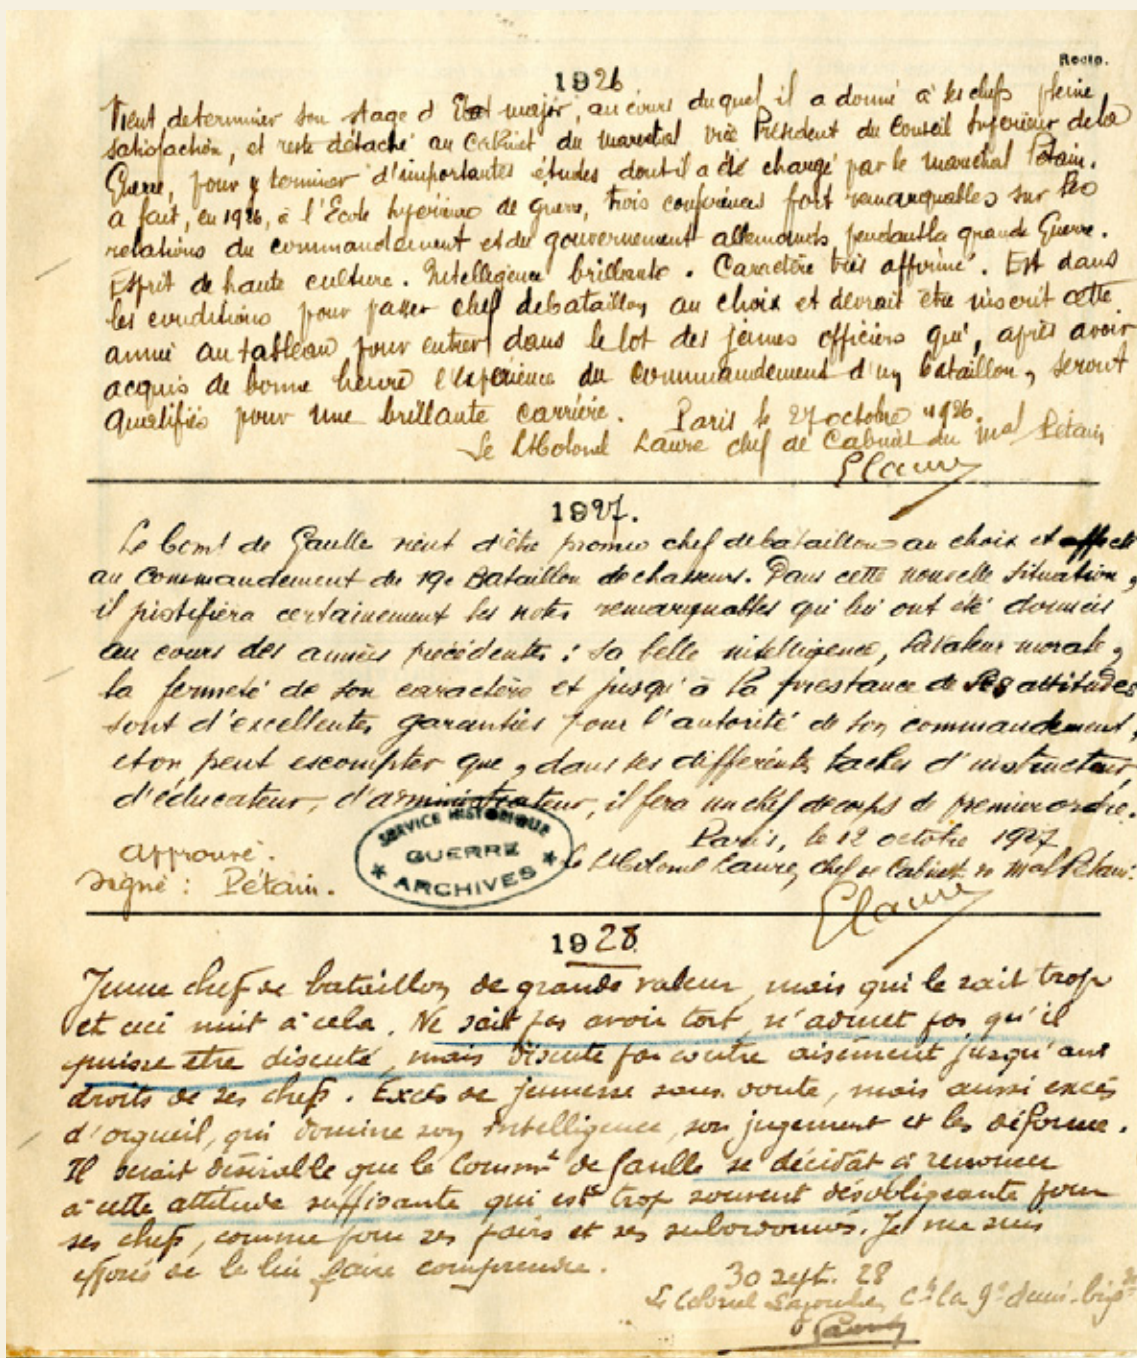 Recto.
1926
Vient de terminer son stage d'Etat major, au cours duquel il a donné à ses chefs pleine
satisfaction, et reste détaché au Cabinet du Maréchal vice Président du Conseil Supérieur de la
Guerre, pour y terminer d'importantes études dont il a été chargé par le maréchal Pétain.
a fait, en 1926, à l'Ecole Supérieure de Guerre, trois conférences fort remarquables sur les
relations du commandement et du gouvernement allemands pendant la grande Guerre.
Esprit de haute culture. Intelligence brillante. Caractère très affirmé. Est dans
les conditions pour passer chef de bataillon au choix et devrait être inscrit cette
année au tableau pour entrer dans le lot des jeunes officiers qui, après avoir
acquis de bonne heure l'expérience du commandement d'un bataillon, seront
qualifiés pour une brillante carrière. Paris le 27 octobre 1926.
Le Lt Colonel Laure chef de Cabinet du Mal Pétain
Elaure
1927.
Le Comt de Gaulle vient d'être promu chef de bataillon au choix et affecté
au commandement du 19e Bataillon de chasseurs. Dans cette nouvelle situation,
il justifiera certainement les notes remarquables qui lui ont été données
au cours des années précédentes : sa belle intelligence, sa valeur morale,
la fermeté de son caractère et jusqu'à la prestance de ses attitudes
sont d'excellentes garanties pour l'autorité de son commandement,
et on peut escompter que, dans ses différentes taches d'instructeur,
d'éducateur, d'administrateur, il fera un chef de corps de premier ordre.
Paris, le 12 octobre 1927
approuvé.
signé : Pétain.
SERVICE HISTORIQUE
GUERRE
* ARCHIVES *
Le Lt Colonel Laure, chef de Cabinet du Mal Pétain.
Elaure
1928
Jeune chef de bataillon de grande valeur mais qui le sait trop
et ceci nuit à cela. Ne sait pas avoir tort, n'admet pas qu'il
puisse être discuté, mais discute par contre aisément jusqu'aux
droits de ses chefs. Excès de jeunesse sans doute, mais aussi excès
d'orgueil, qui domine son intelligence, son jugement et les déforme.
Il serait désirable que le Commt de Gaulle se décidât à renoncer
à cette attitude suffisante qui est trop souvent désobligeante pour
ses chefs, comme pour ses pairs et ses subordonnés. Je me suis
efforcé de le lui faire comprendre.
30 sept. 28
Le Colonel Ct la 9e demi-brigde